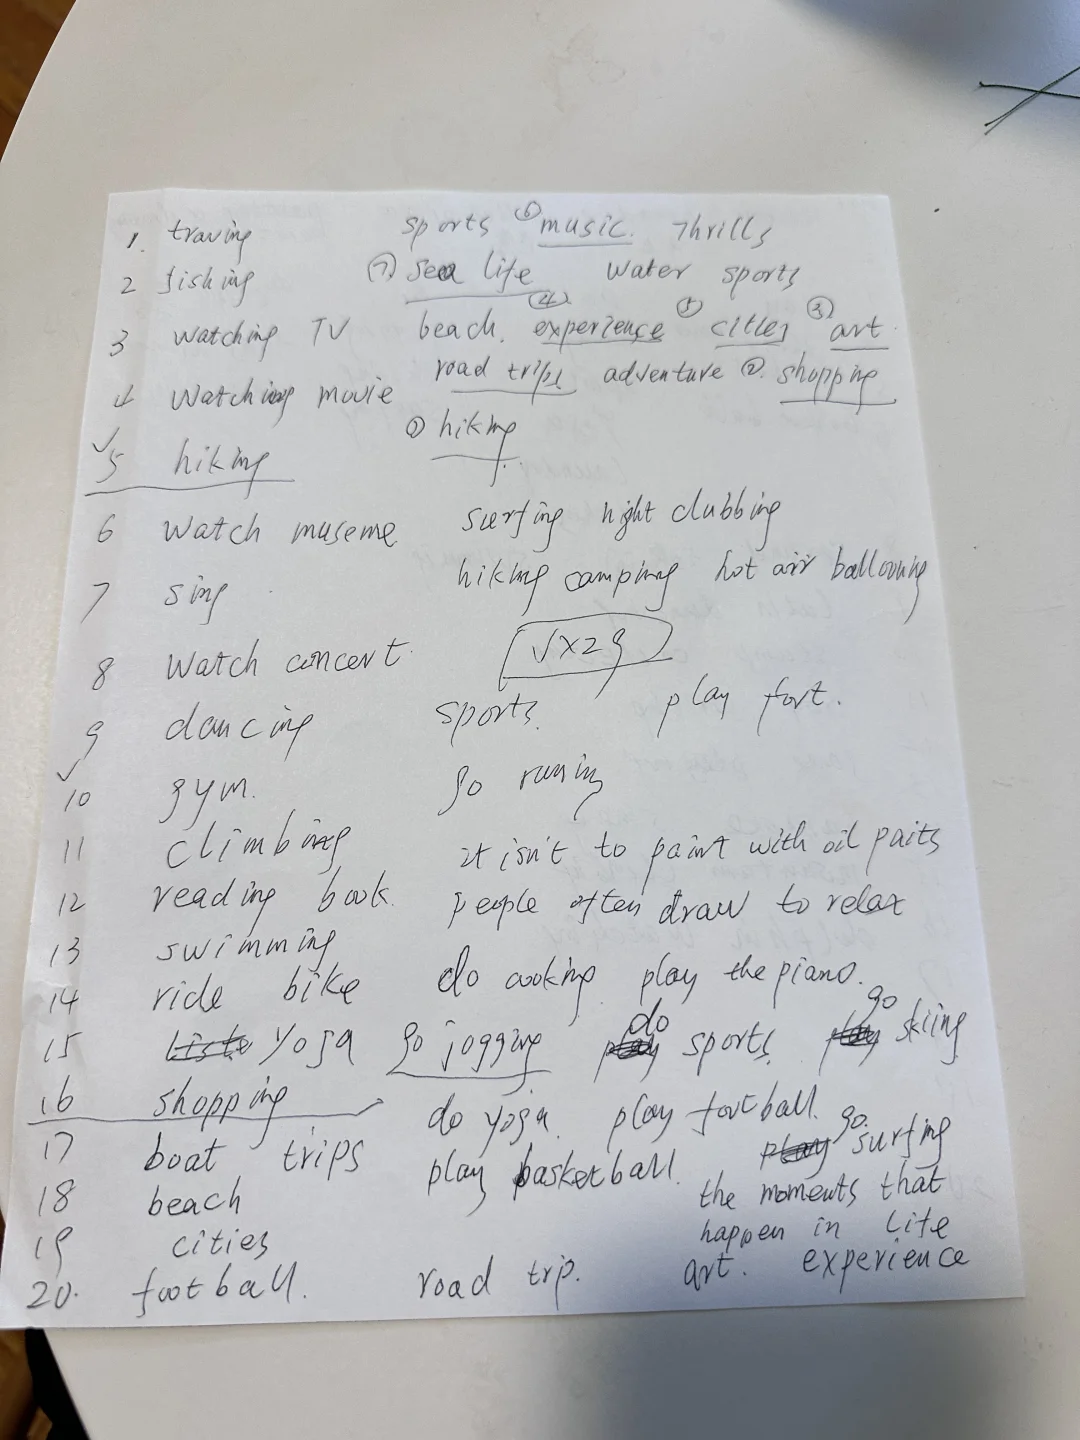 1. traving sports ⑥ music. Thrills
2 fishing ⑦ sea life water sports
3 watching TV beach. ④ experience ① cities ③ art.
4 watching movie road trips adventure ②. shopping
✓5 hiking hiking
6 watch museme surfing night clubbing
7 sing hiking camping hot air ballooning
8 watch concert.
9 dancing sports. play foot.
✓10 gym. go runing
11 climbing it isn't to paint with oil paits
12 reading book. people often draw to relax
13 swimming
14 ride bike do cooking play the piano.
15 yoga go jogging do sports go skiing
16 shopping do yoga. play football.
17 boat trips play basketball. go surfing
18 beach the moments that
19 cities happen in life
20. football. road trip. art. experience